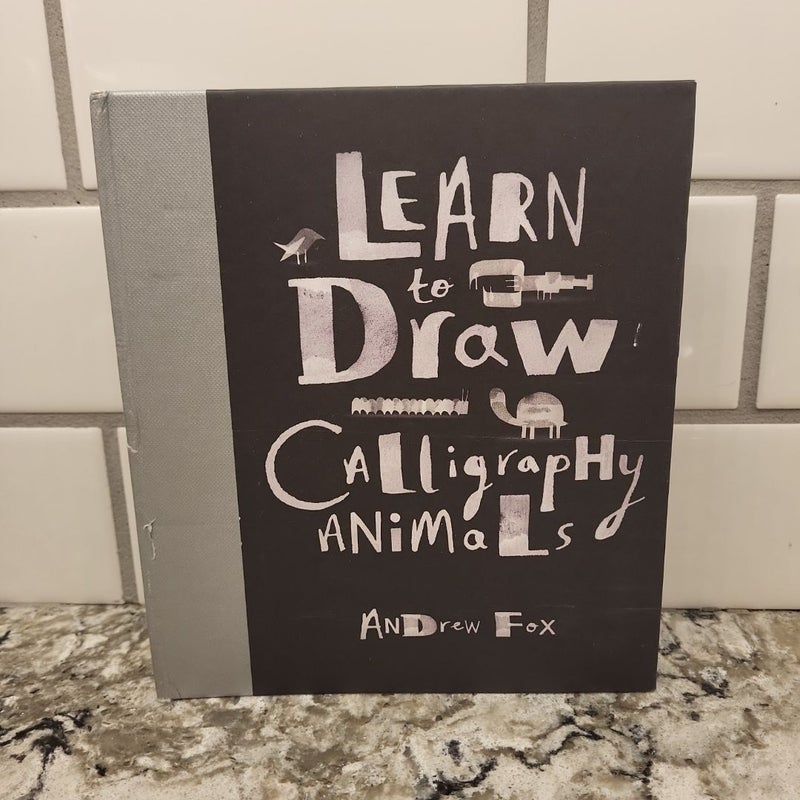 LEARN
to
Draw
CALLigrapHy
ANiMaLs
ANDrew Fox